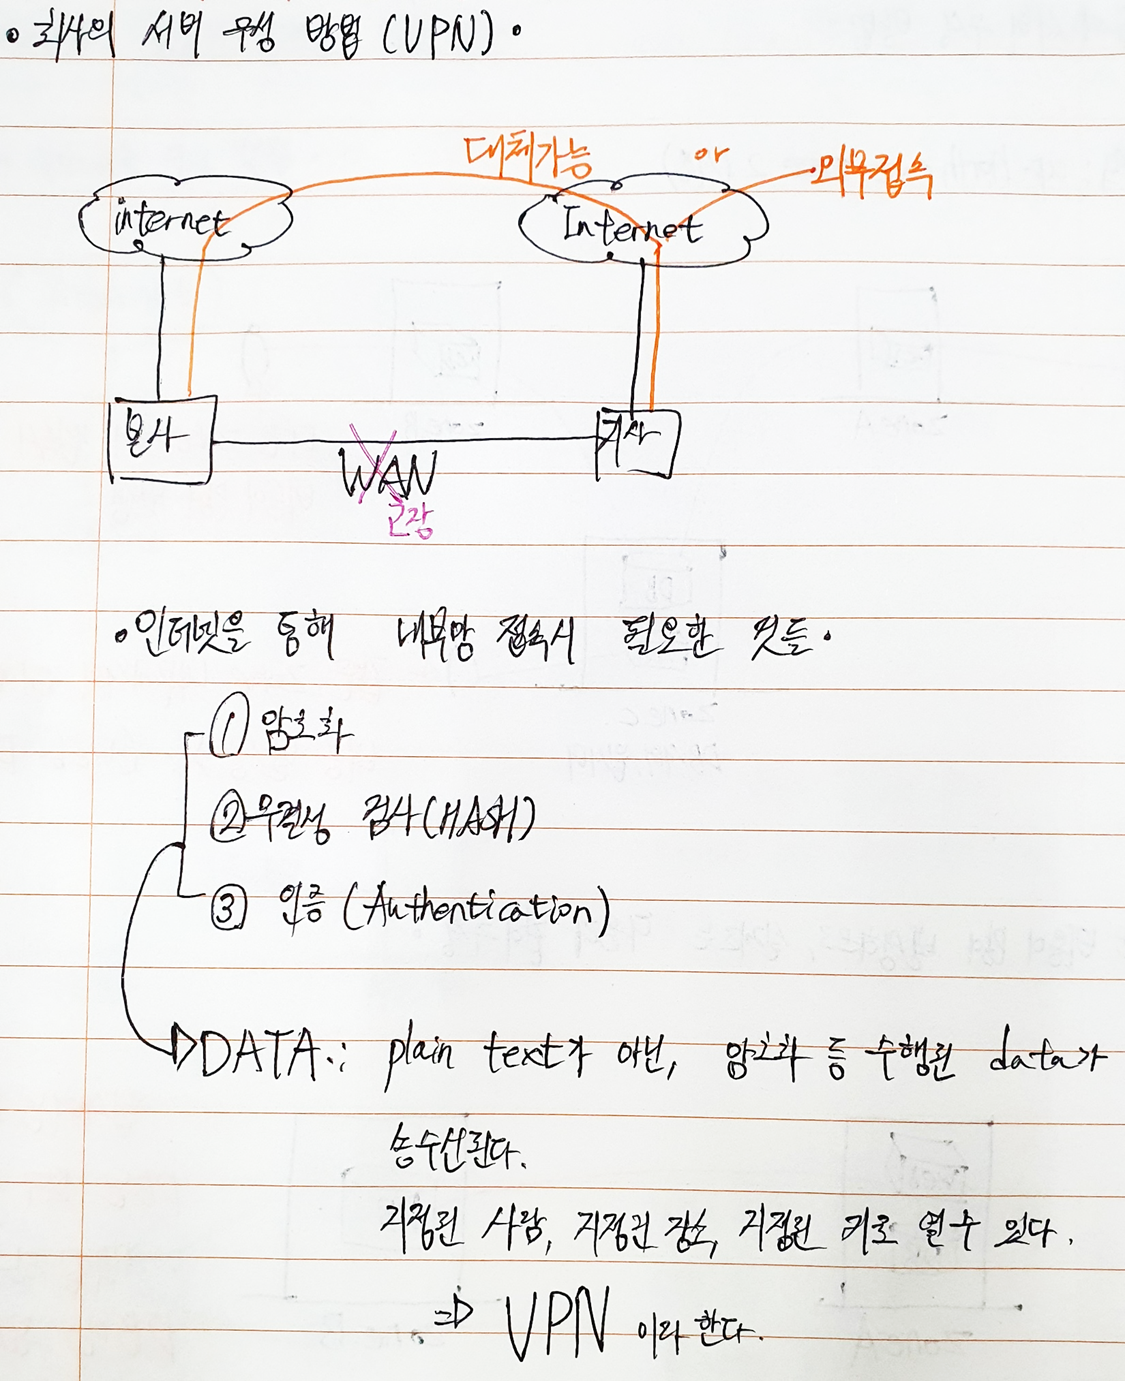 • 회사의 서버 구성 방법 (VPN) •
대체가능 or 외부접속
internet Internet
본사 지사
WAN
고장
• 인터넷을 통해 내부망 접속시 필요한 것들 •
① 암호화
② 무결성 검사 (HASH)
③ 인증 (Authentication)
DATA.: plain text가 아닌, 암호화 등 수행된 data가
송수신된다.
지정된 사람, 지정된 장소, 지정된 키로 열 수 있다.
⇒ VPN 이라 한다.